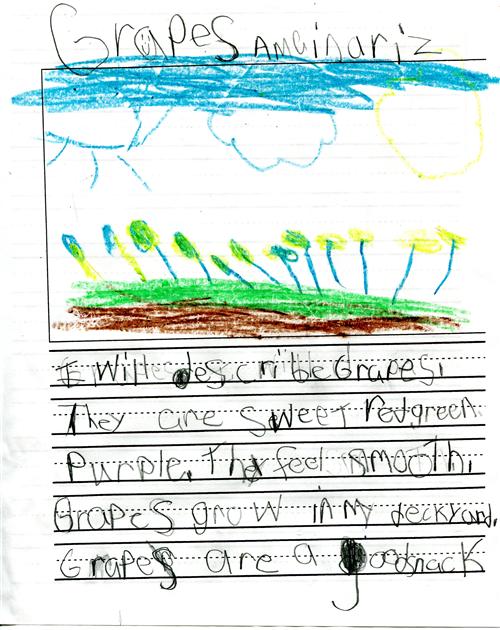 Grapes Amainariz
I Will describle Grapes.
They are sweet red green
Purple. They feel smooth.
Grapes grow in my beckyard.
Grapes are a good snack